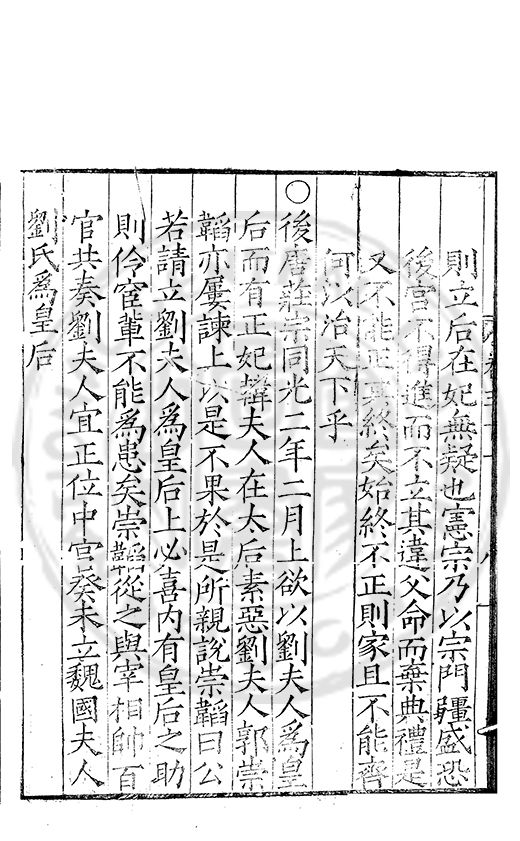 則立后在妃無疑也憲宗乃以宗門疆盛恐
後宮不得進而不立其違父命而棄典禮是
又不能正其終矣始終不正則家且不能齊
何以治天下乎
○後唐莊宗同光二年二月上欲以劉夫人爲皇
后而有正妃韓夫人在太后素惡劉夫人郭崇
韜亦屢諫上以是不果於是所親說崇韜曰公
若請立劉夫人爲皇后上必喜内有皇后之助
則伶宦輩不能爲患矣崇韜從之與宰相帥百
官共奏劉夫人宜正位中宮癸未立魏國夫人
劉氏爲皇后